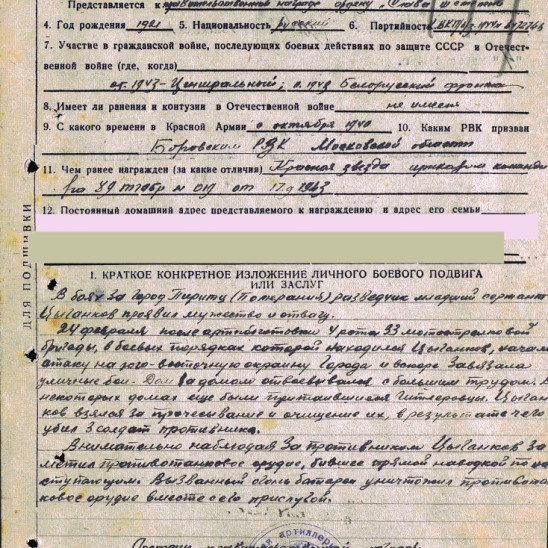 Представляется к правительственной награде ордену „Слава III степени
4. Год рождения 1921 5. Национальность русский 6. Партийность ВКП(б)
7. Участие в гражданской войне, последующих боевых действиях по защите СССР и Отечест-
венной войне (где, когда)
1943-Центральный; 1943 Белорусский фронта
8. Имеет ли ранения и контузии в Отечественной войне не имеет
9. С какого времени в Красной Армии с октября 1940 10. Каким РВК призван
Боровским РВК Московской области
11. Чем ранее награжден (за какие отличия) Красная звезда приказом команди
ра 1943
12. Постоянный домашний адрес представляемого к награждению и адрес его семьи
ДЛЯ ПОДШИВКИ
1. КРАТКОЕ КОНКРЕТНОЕ ИЗЛОЖЕНИЕ ЛИЧНОГО БОЕВОГО ПОДВИГА
ИЛИ ЗАСЛУГ
В боях за город Пиритц (Померания) разведчик младший сержант
Цыганков проявил мужество и отвагу.
24 февраля после артподготовки 4 рота 33 мотострелковой
бригады, в боевых порядках которой находился Цыганков, начала
атаку на юго-восточную окраину города и вскоре завязала
уличные бои. Дом за домом отвоевывался с большим трудом. В
некоторых домах еще были притаившиеся гитлеровцы. Цыган-
ков взялся за прочесывание и очищение их, в результате чего
убил 3 солдат противника.
Внимательно наблюдая за противником Цыганков за
метил противотанковое орудие, бившее прямой наводкой по на
ступающим. Вызванный огонь батареи уничтожил противотан
ковое орудие вместе с его прислугой.